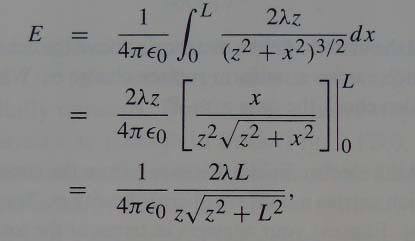 E = \frac{1}{4\pi\epsilon_0} \int_0^L \frac{2\lambda z}{(z^2 + x^2)^{3/2}} dx
= \frac{2\lambda z}{4\pi\epsilon_0} \left[ \frac{x}{z^2\sqrt{z^2 + x^2}} \right] \Big|_0^L
= \frac{1}{4\pi\epsilon_0} \frac{2\lambda L}{z\sqrt{z^2 + L^2}},